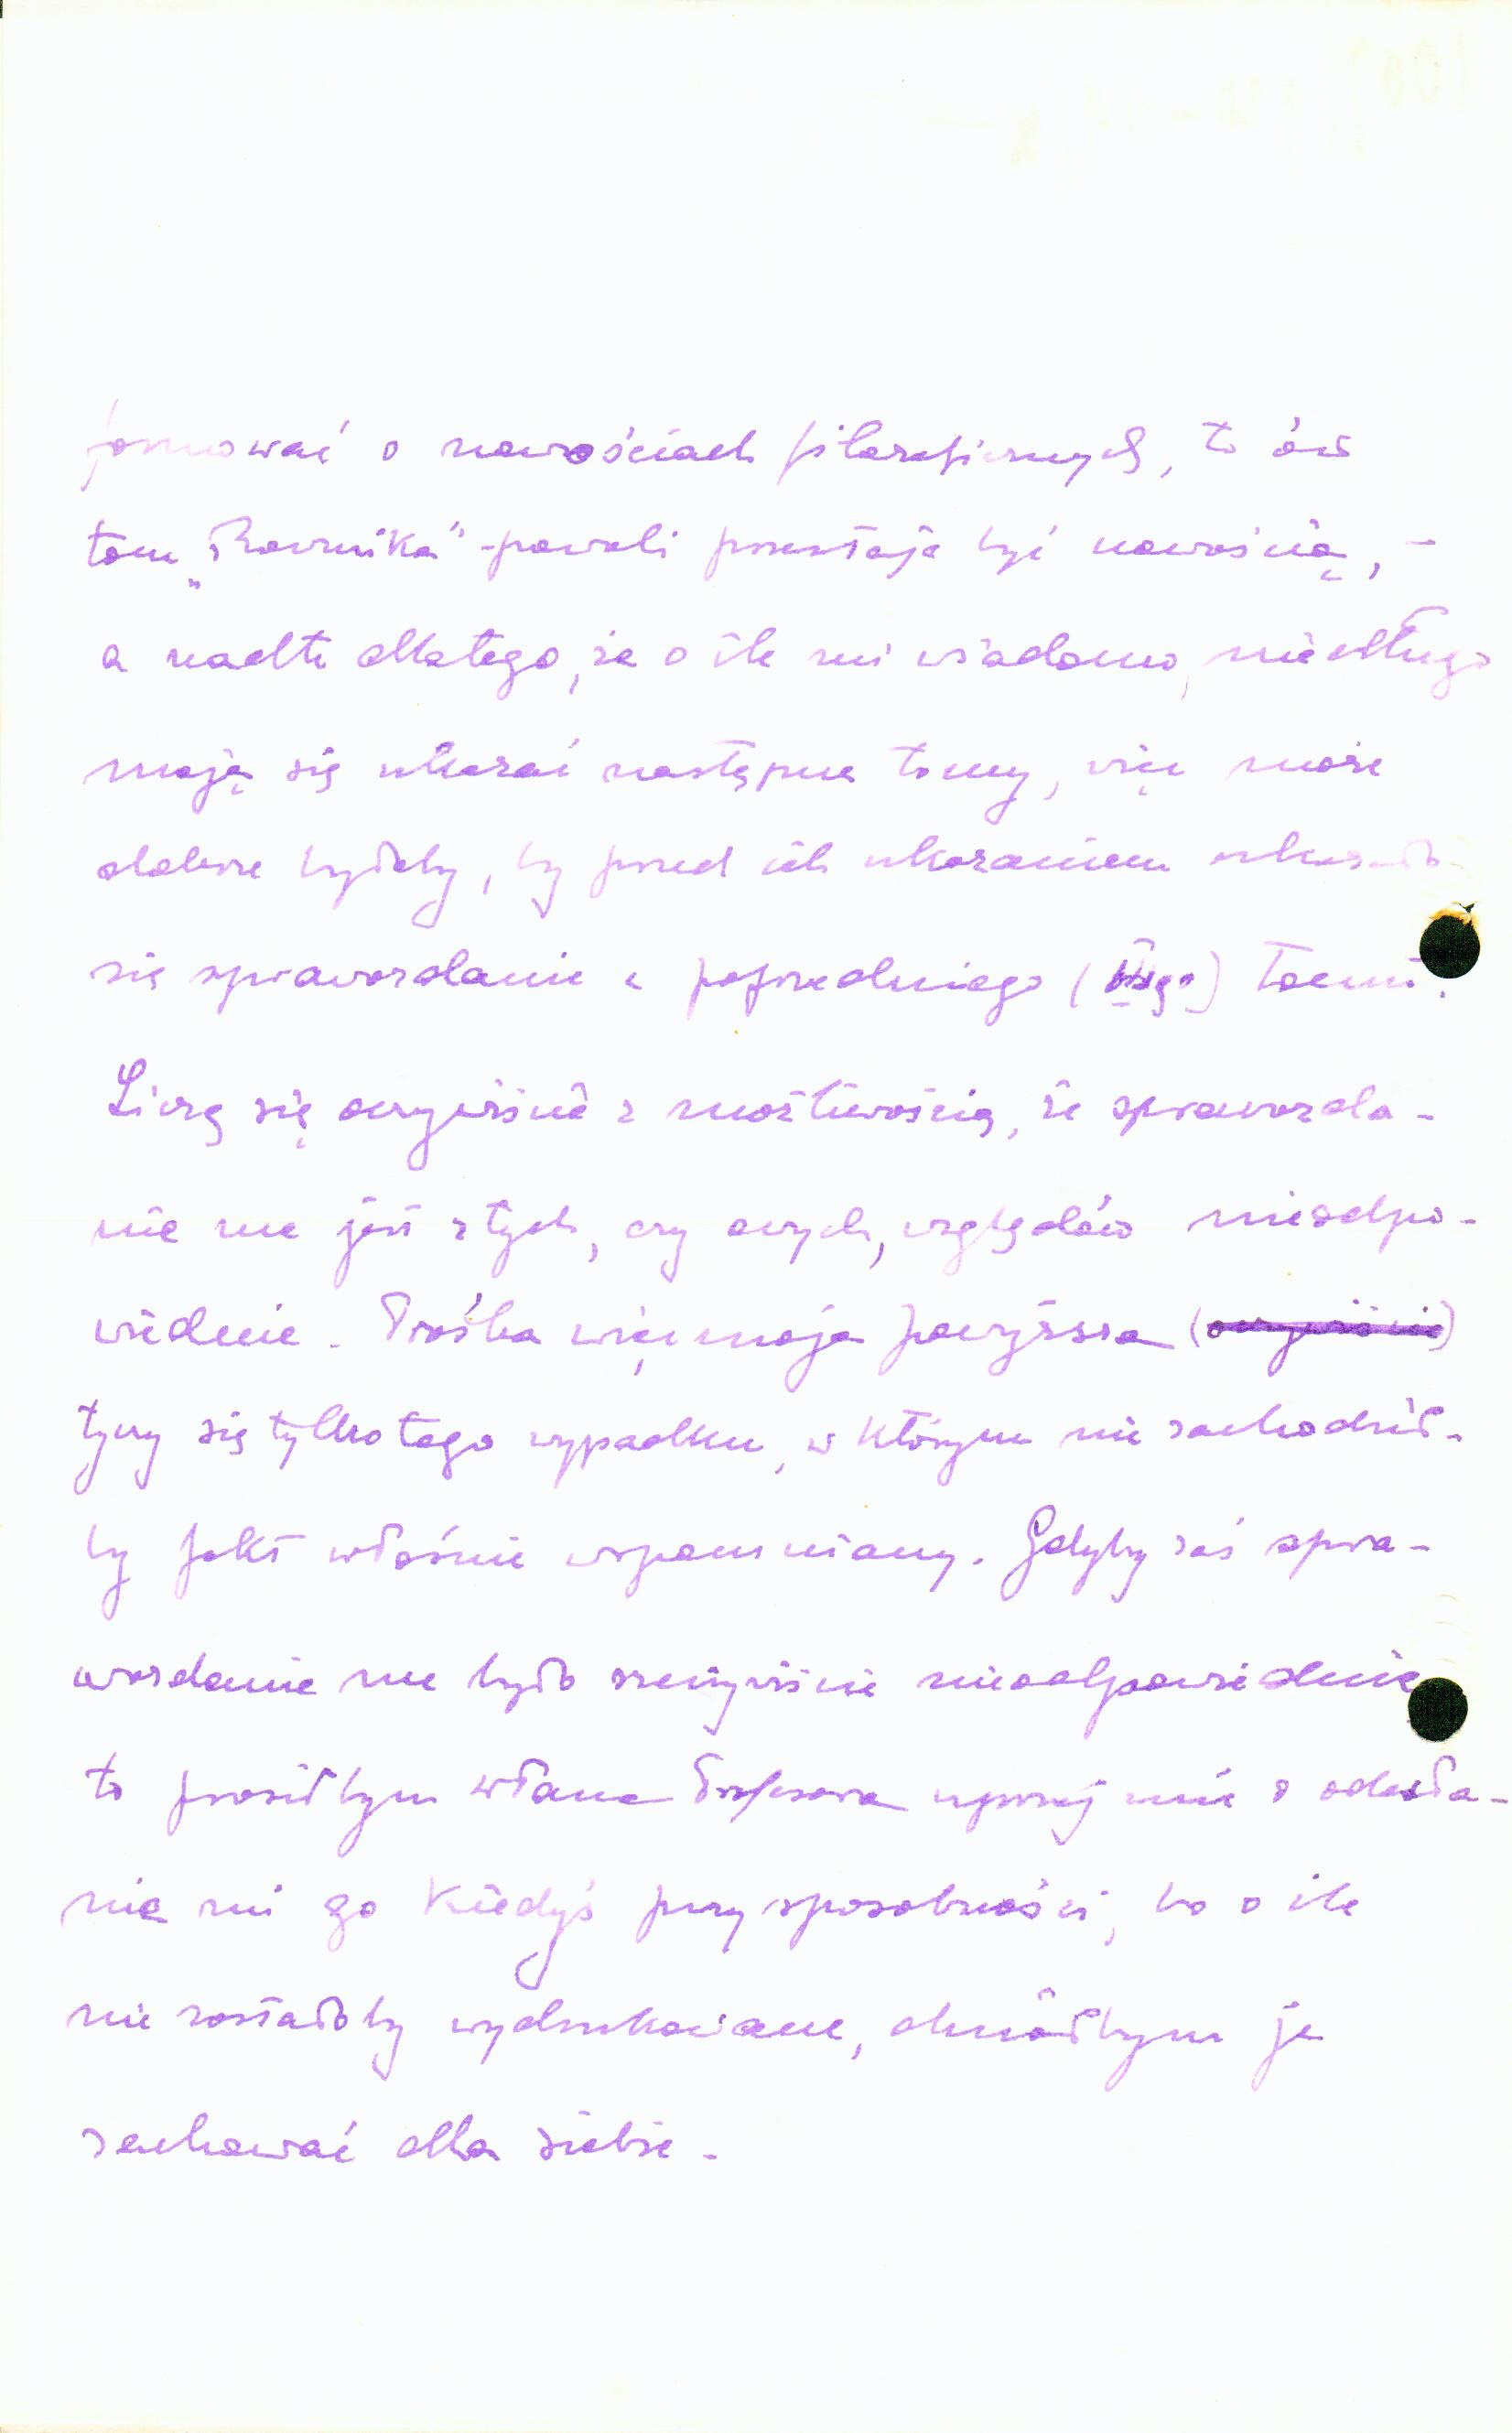 formować o nowościach filozoficznych, to ów
tom „Rocznika" - powoli przestaje być nowością, -
a nadto dlatego, że o ile mi wiadomo, niedługo
mają się ukazać następne tomy, więc może
dobrze byłoby, by przed ich ukazaniem ukazało
się sprawozdanie z poprzedniego (IIIgo) tomu.
Liczę się oczywiście z możliwością, że sprawozda-
nie me jest z tych, czy owych, względów nieodpo-
wiednie. Prośba więc moja powyższa (oczywiście)
tyczy się tylko tego wypadku, w którym nie zachodził-
by fakt właśnie wspomniany. Gdyby zaś spra-
wozdanie me było rzeczywiście nieodpowiednie
to prosiłbym WPana Profesora uprzejmie o odesła-
nie mi go kiedyś przy sposobności, bo o ile
nie zostałoby wydrukowane, chciałbym je
zachować dla siebie.